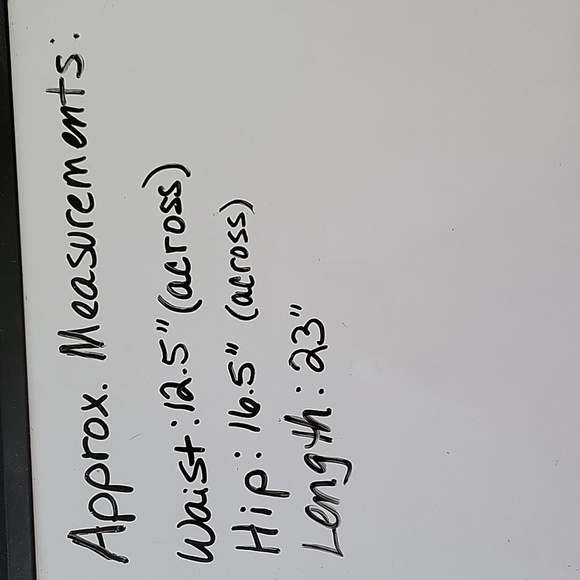 Approx. Measurements:
Waist: 12.5" (across)
Hip: 16.5" (across)
Length: 23"